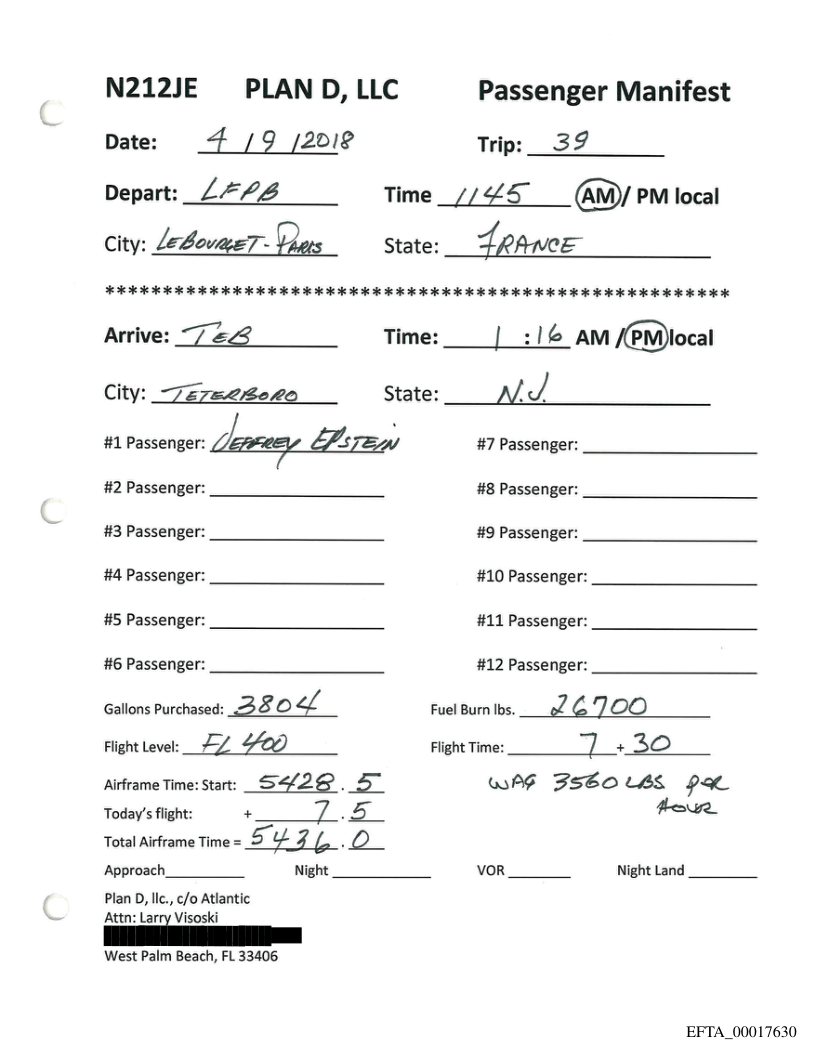 N212JE PLAN D, LLC Passenger Manifest
Date: 4 / 9 / 2018 Trip: 39
Depart: LFPB Time 1145 AM / PM local
City: LEBOURGET - PARIS State: FRANCE
*****************************************************
Arrive: TEB Time: 1 : 16 AM / PM local
City: TETERBORO State: N.J.
#1 Passenger: JEFFREY EPSTEIN #7 Passenger:
#2 Passenger: #8 Passenger:
#3 Passenger: #9 Passenger:
#4 Passenger: #10 Passenger:
#5 Passenger: #11 Passenger:
#6 Passenger: #12 Passenger:
Gallons Purchased: 3804 Fuel Burn lbs. 26700
Flight Level: FL 400 Flight Time: 7 + 30
Airframe Time: Start: 5428 . 5 WAG 3560 LBS per
Today's flight: + 7 . 5 HOUR
Total Airframe Time = 5436 . 0
Approach Night VOR Night Land
Plan D, llc., c/o Atlantic
Attn: Larry Visoski
West Palm Beach, FL 33406
EFTA_00017630